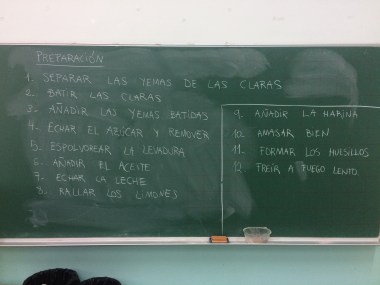 PREPARACIÓN
1. SEPARAR LAS YEMAS DE LAS CLARAS
2. BATIR LAS CLARAS
3. AÑADIR LAS YEMAS BATIDAS
4. ECHAR EL AZÚCAR Y REMOVER
5. ESPOLVOREAR LA LEVADURA
6. AÑADIR EL ACEITE
7. ECHAR LA LECHE
8. RALLAR LOS LIMONES
9. AÑADIR LA HARINA
10. AMASAR BIEN
11. FORMAR LOS HUESILLOS
12. FREÍR A FUEGO LENTO